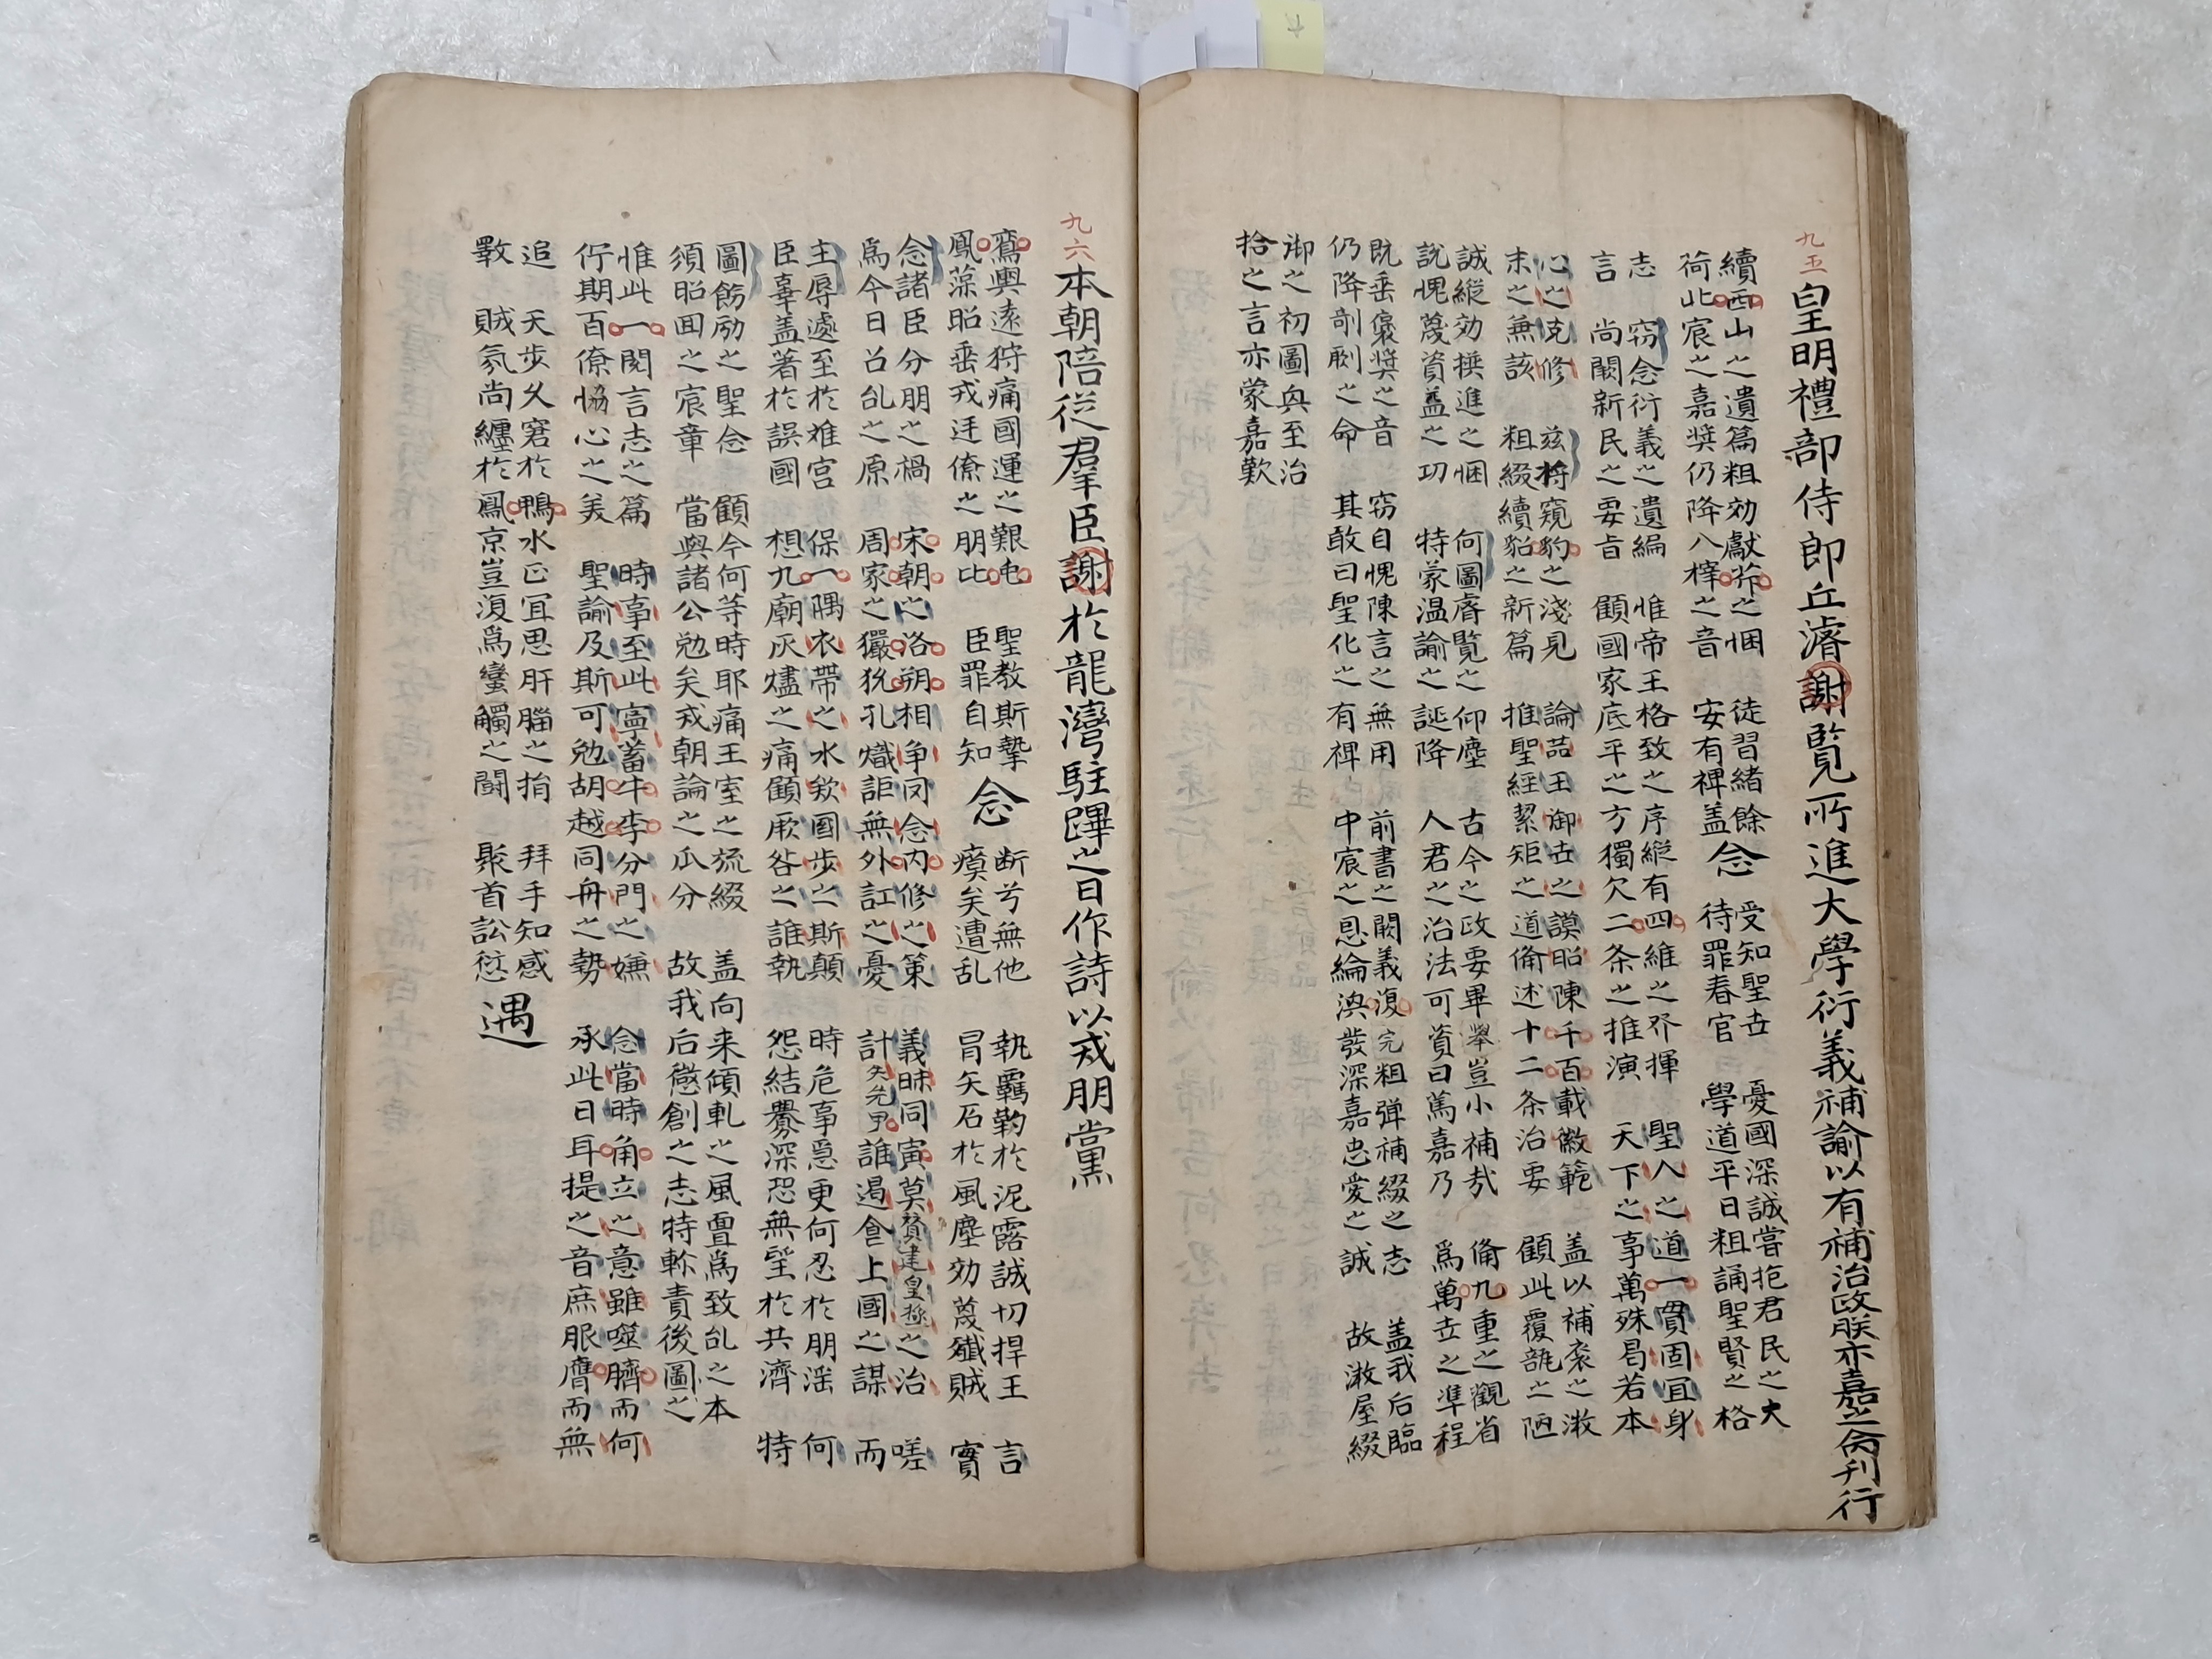 九五
皇明禮部侍郎丘濬謝覧所進大學衍義補諭以有補治政朕亦嘉之命刊行
續西山之遺篇粗効獻芹之悃 徒習緒餘 念 受知聖世 憂國深誠嘗抱君民之大
荷北宸之嘉奬仍降八梓之音 安有裨益 待罪春官 學道平日粗誦聖賢之格
志 窃念衍義之遺編 惟帝王格致之序縱有四維之界揮 聖人之道一貫固宜身
言 尚闕新民之要旨 顧國家底平之方獨欠二条之推演 天下之事萬殊曷若本
心之克修 兹將窺豹之淺見 論喆王御世之謨昭陳千百載徽範 盖以補衮之
末之無該 粗綴續貂之新篇 推聖經絜矩之道俻述十二条治要 顧此覆瓿之陋
誠縱効撰進之悃 何圖睿覽之仰塵 古今之政要畢擧豈小補㢤 俻九重之觀省
説愧蔑資益之功 特蒙温諭之誕降 人君之治法可資曰篤嘉乃 爲萬世之準程
既垂褒奬之音 窃自愧陳言之無用 前書之闕義復完粗弹補綴之志 盖我后臨
仍降剞劂之命 其敢曰聖化之有裨 中宸之恩綸渙發深嘉忠愛之誠 故 屋綴
御之初圖 至治
拾之言亦蒙嘉歎
九六
本朝陪從羣臣謝於龍灣駐蹕之日作詩以戒朋黨
鸞輿遠狩痛國運之艱屯 聖教斯摯 念 断兮無他 執羈靮於泥露誠切捍王 言
鳳藻昭垂戒廷僚之朋比 臣罪自知 瘼矣遭乱 冒矢石於風塵効蔑殲賊 實
念諸臣分朋之禍 宋朝之洛朔相争罔念内修之策 義昧同寅莫贊建皇極之治 嗟
爲今日召乱之原 周家之玁狁孔熾詎無外訌之憂 計失先甲誰遏食上國之謀 而
主辱遽至於难宫 保一隅衣帶之水欸國步之斯顛 時危事急更何忍於朋滛 何
臣辜盖著於誤國 想九廟灰燼之痛顧厥咎之誰執 怨結釁深恐無望於共濟 特
圖飭励之聖念 顧今何等時耶痛王室之旒綴 盖向来傾軋之風亶爲致乱之本
須昭回之宸章 當與諸公勉矣戎朝論之瓜分 故我后懲創之志特軫責後圖之
惟此一関言志之篇 時事至此寧蓄牛李分門之嫌 念當時角立之意雖噬臍而何
佇期百僚恊心之美 聖諭及斯可勉胡越同舟之勢 承此日耳提之音庶服膺而無
追 天步久窘於鴨水正宜思肝腦之捐 拜手知感 遇
斁 賊氛尚纏於鳳京豈復爲蠻觸之闘 聚首訟愆